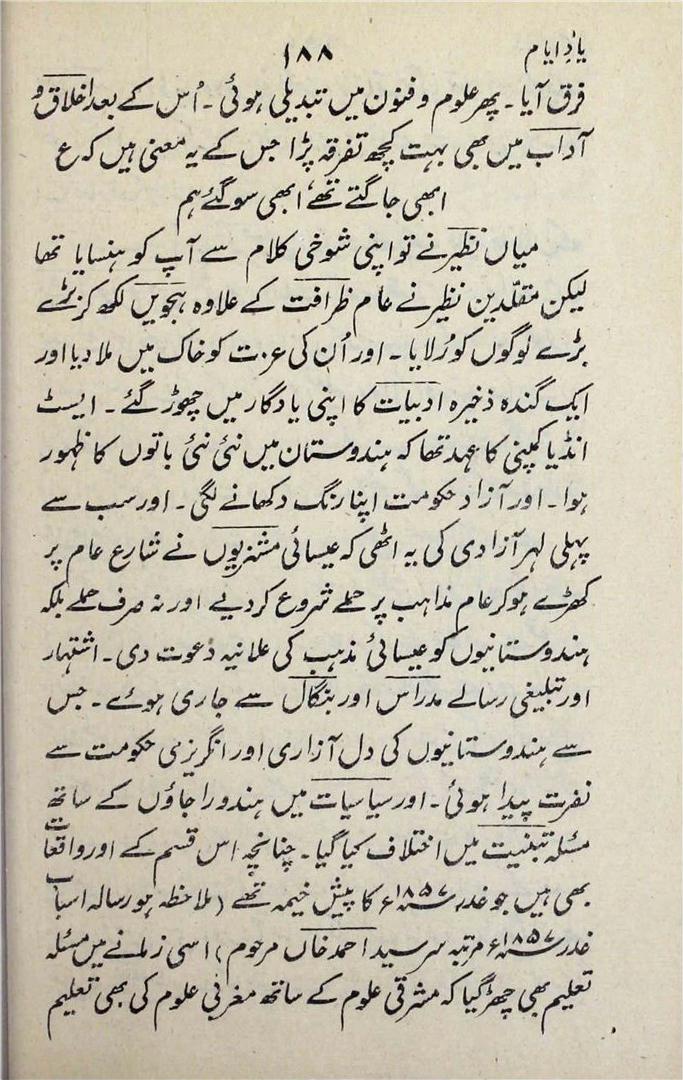 یادِ ایام
۱۸۸
فرق آیا۔ پھر علوم و فنون میں تبدیلی ہوئی۔ اُس کے بعد اخلاق و
آداب میں بھی بہت کچھ تفرقہ پڑا جس کے یہ معنی ہیں کہ ع
ابھی جاگتے تھے، ابھی سو گئے ہم
میاں نظیر نے تو اپنی شوخی کلام سے آپ کو ہنسایا تھا
لیکن مقلّدین نظیر نے عام ظرافت کے علاوہ ہجویں لکھ کر بڑے
بڑے لوگوں کو رُلایا۔ اور اُن کی عزت کو خاک میں ملا دیا اور
ایک گندہ ذخیرہ ادبیات کا اپنی یادگار میں چھوڑ گئے۔ ایسٹ
انڈیا کمپنی کا عہد تھا کہ ہندوستان میں نئی نئی باتوں کا ظہور
ہوا۔ اور آزاد حکومت اپنا رنگ دکھانے لگی۔ اور سب سے
پہلی لہر آزادی کی یہ اٹھی کہ عیسائی مشنریوں نے شارع عام پر
کھڑے ہو کر عام مذاہب پر حملے شروع کر دیے اور نہ صرف حملے بلکہ
ہندوستانیوں کو عیسائی مذہب کی علانیہ دعوت دی۔ اشتہار
اور تبلیغی رسالے مدراس اور بنگال سے جاری ہوئے۔ جس
سے ہندوستانیوں کی دل آزاری اور انگریزی حکومت سے
نفرت پیدا ہوئی۔ اور سیاسیات میں ہندو راجاؤں کے ساتھ
مسئلہ تبنیت میں اختلاف کیا گیا۔ چنانچہ اس قسم کے اور واقعات
بھی ہیں جو غدر ۱۸۵۷ء کا پیش خیمہ تھے (ملاحظہ ہو رسالہ اسباب
غدر ۱۸۵۷ء مرتبہ سر سید احمد خاں مرحوم) اسی زمانے میں مسئلہ
تعلیم بھی چھڑ گیا کہ مشرقی علوم کے ساتھ مغربی علوم کی بھی تعلیم